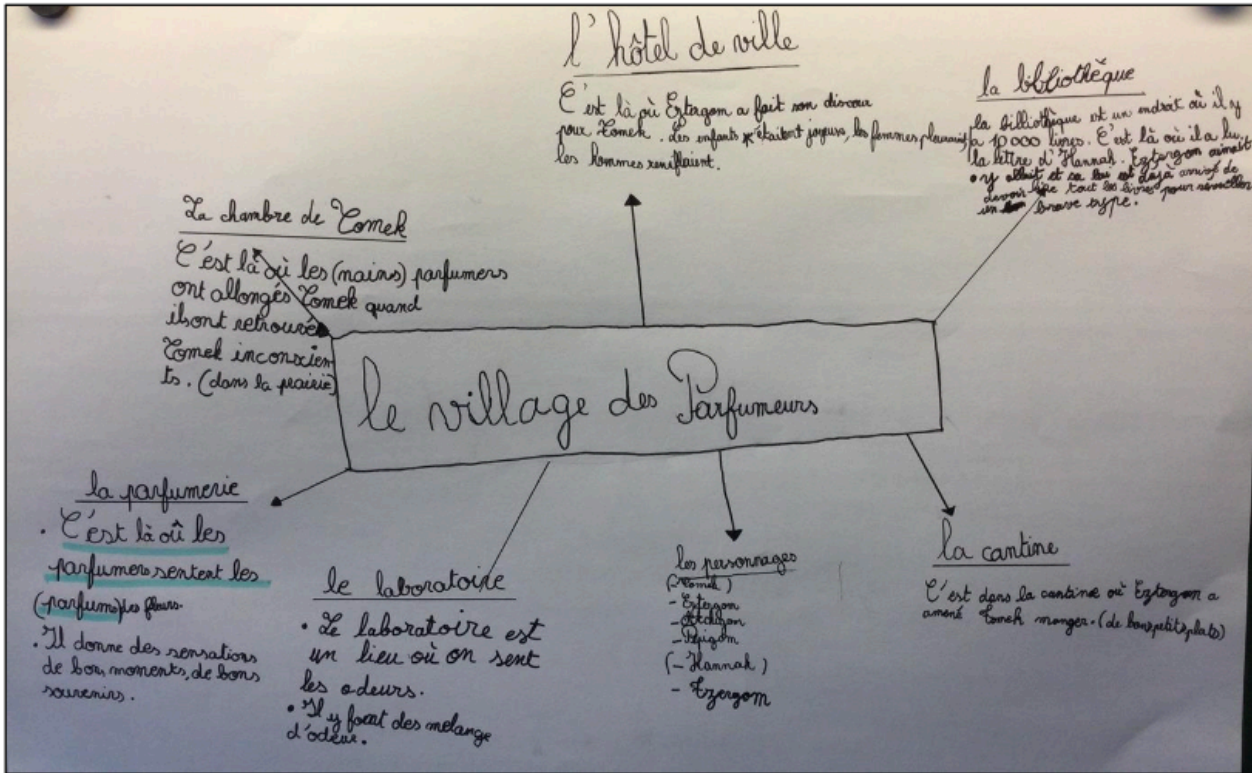 l'hôtel de ville
C'est là où Eztergom a fait son discour
pour Tomek. Les enfants étaitent joyeuse, les femmes pleuraient
les hommes reniflaient.
la bibliothèque
la billiothèque est un endrait où il y
a 10 000 livres. C'est là où il a lu
la lettre d'Hannah. Eztergom aimait
y allait et sa lui est dejà arrivé de
devoir lire tout les livres pour réveiller
un brave type.
La chambre de Tomek
C'est là où les (nains) parfumers
ont allongés Tomek quand
ils ont retrouvé
Tomek inconscien-
ts. (dans la prairie)
le village des Parfumeurs
la parfumerie
• C'est là où les
parfumers sentent les
(parfums) les fleurs.
• Il donne des sensations
de bons moments, de bons
souvenirs.
le laboratoire
• Le laboratoire est
un lieu où on sent
les odeurs.
• Il y font des melange
d'odeur.
les personnages
(-Tomek)
- Estergom
- Atchigom
- Pépigom
(- Hannah)
- Ezergom
la cantine
C'est dans la cantine où Eztergom a
amené Tomek manger. (de bons petits plats)